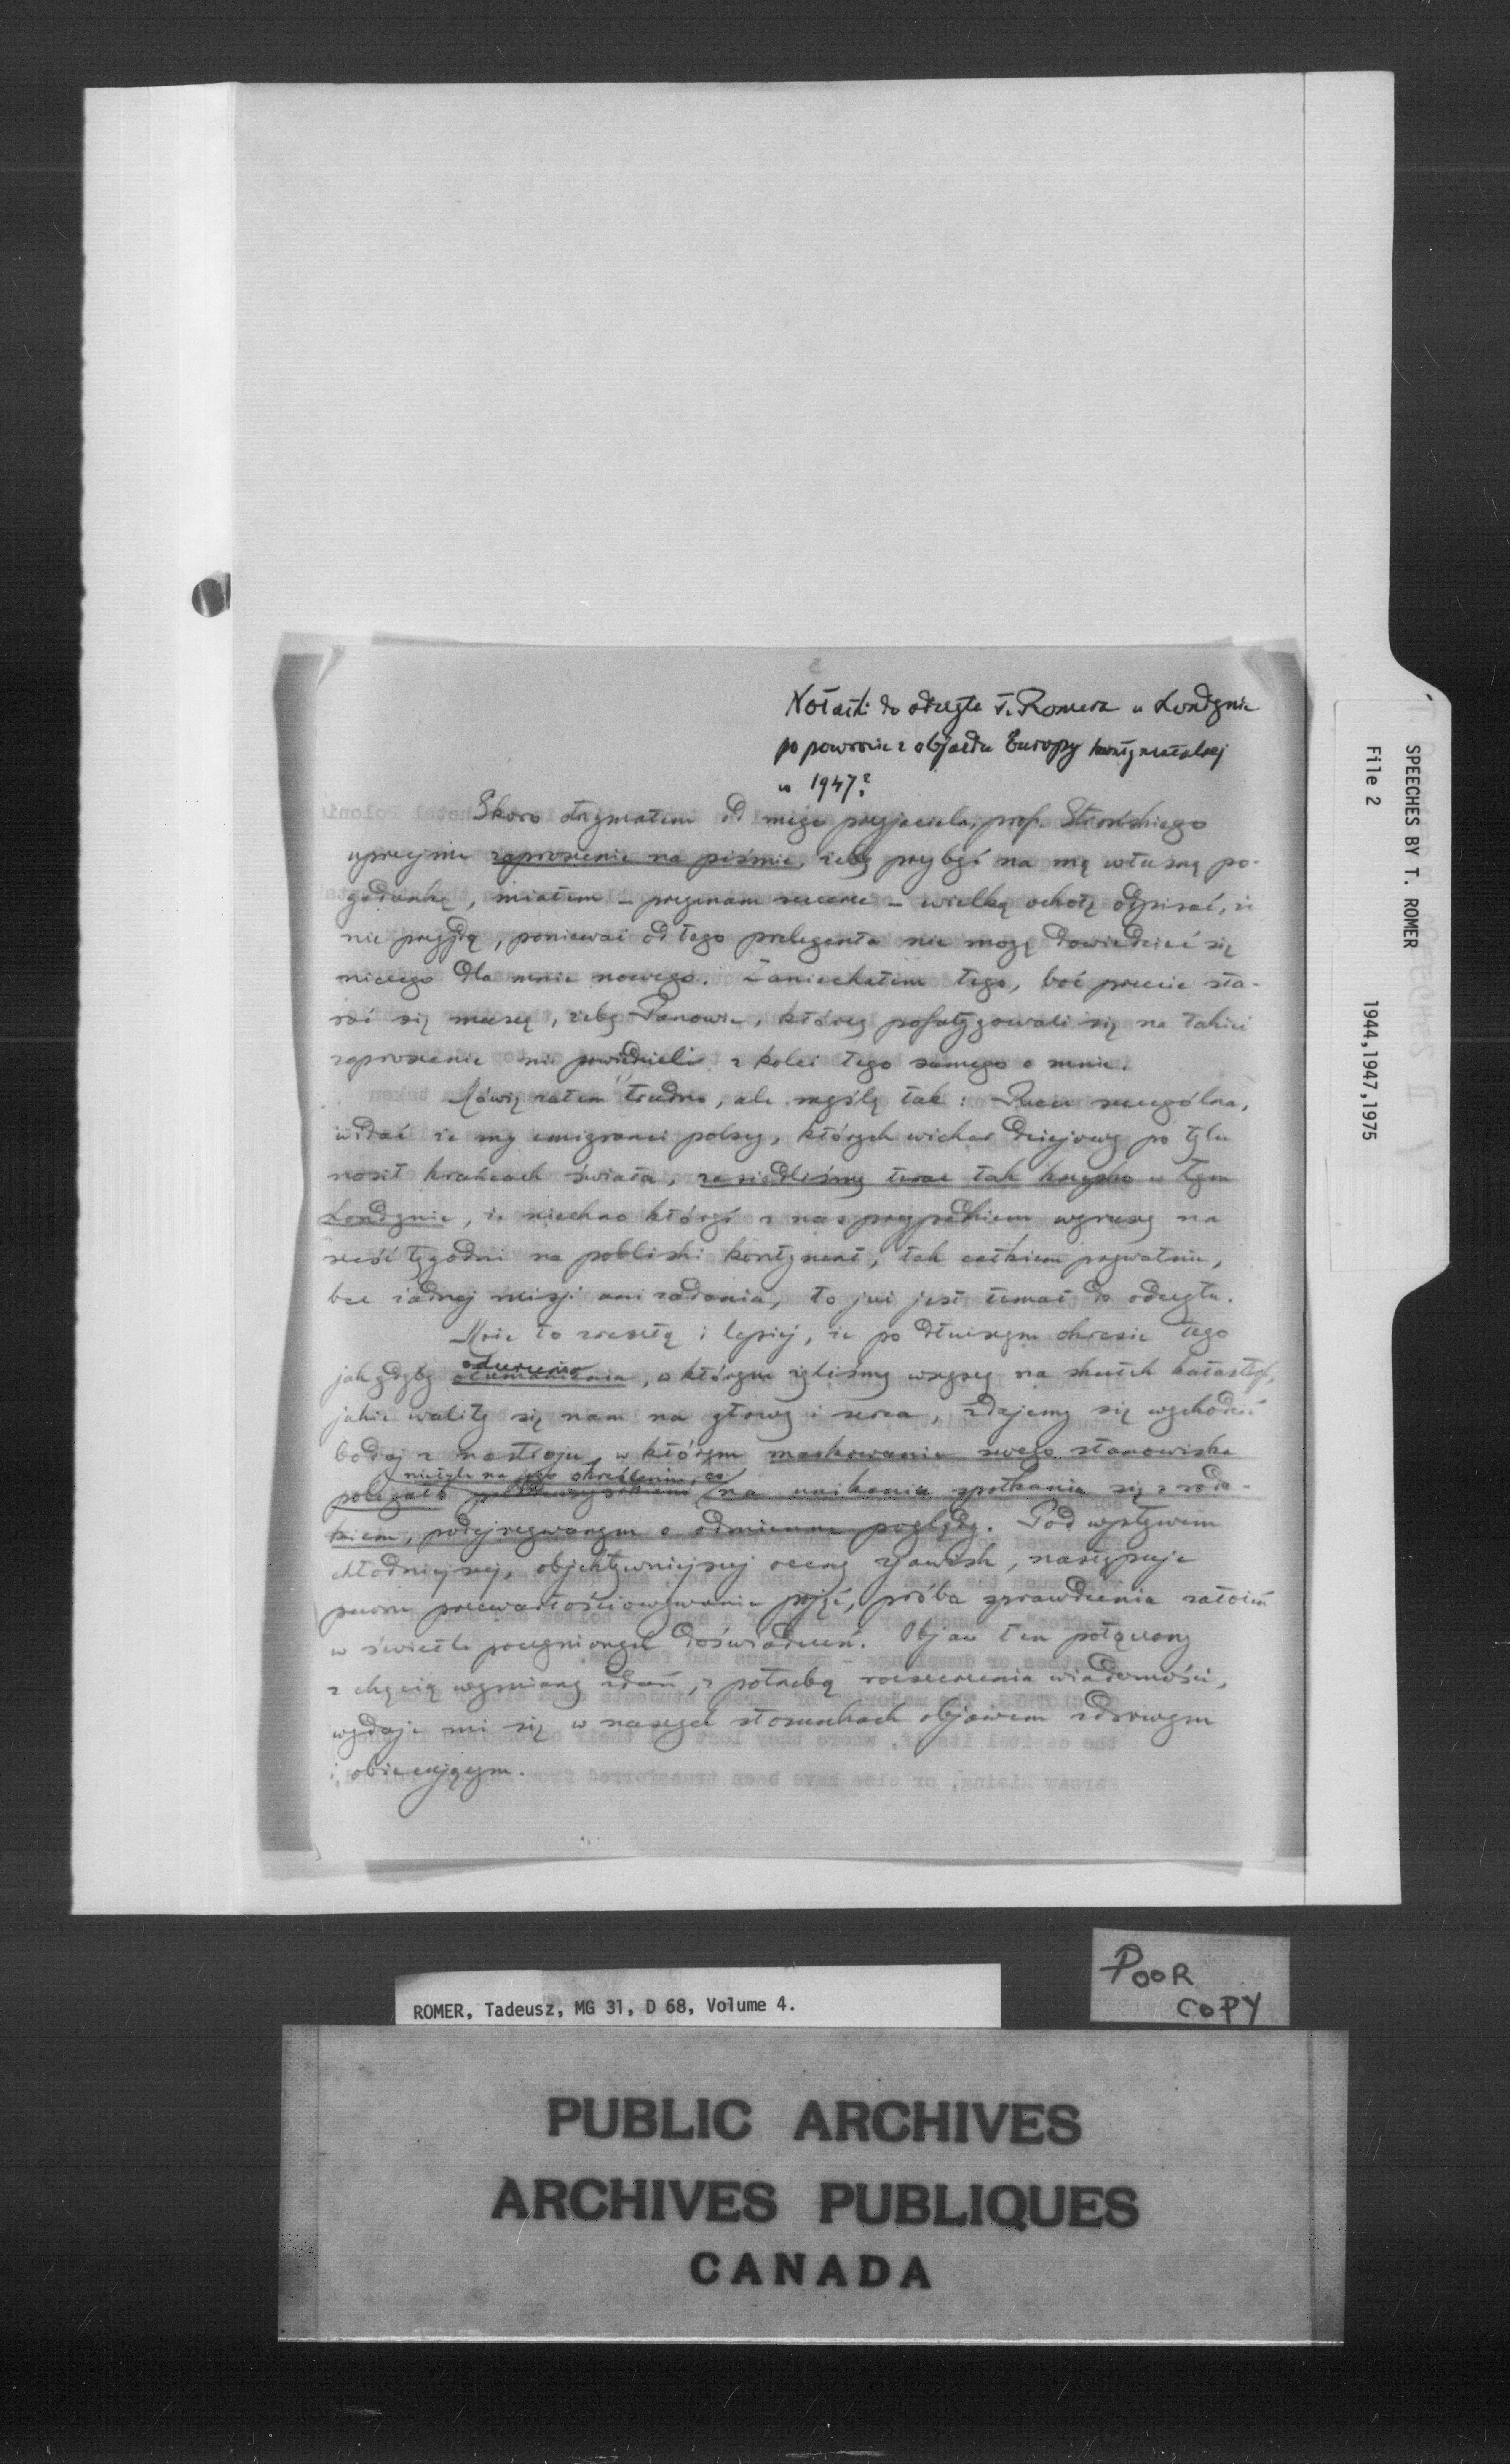 Notatki do odczytu T. Romera w Londynie
po powrocie z objazdu Europy kontynentalnej
w 1947?
Skoro otrzymałem od mego przyjaciela, prof. Strońskiego
uprzejme zaproszenie na piśmie, żeby przybyć na mą własną po-
gadankę, miałem – przyznam szczerze – wielką ochotę odpisać, że
nie przyjdę, ponieważ od tego prelegenta nie mogę dowiedzieć się
niczego dla mnie nowego. Zaniechałem tego, boć przecie sta-
rać się muszę, żeby Panowie, którzy pofatygowali się na takież
zaproszenie nie powiedzieli z kolei tego samego o mnie.
Mówię zatem trudno, ale myślę tak: Rzecz szczególna,
widać że my emigranci polscy, których wicher dziejowy po tylu
nosił krańcach świata, zasiedliśmy teraz tak krzepko w tym
Londynie, że niechno któryś z nas przypadkiem wyruszy na
sześć tygodni na pobliski kontynent, tak całkiem prywatnie,
bez żadnej misji ani zadania, to już jest temat do odczytu.
Może to zresztą i lepiej, że po dłuższym okresie tego
jak gdyby odurzenia, w którym żyliśmy wszyscy na skutek katastrof,
jakie waliły się nam na głowy i serca, zdajemy się wychodzić
bodaj z nastroju, w którym maskowanie swego stanowiska
nie tyle na jego określeniu, co
polegało na unikaniu spotkania się z roda-
kiem, podejrzewanym o odmienne poglądy. Pod wpływem
chłodniejszej, objektywniejszej oceny zjawisk, następuje
pewne przewartościowywanie pojęć, próba sprawdzenia założeń
w świetle poczynionych doświadczeń. Objaw ten połączony
z chęcią wymiany zdań, z potrzebą rozszerzenia wiadomości,
wydaje mi się w naszych stosunkach objawem zdrowym
i obiecującym.
SPEECHES BY T. ROMER
File 2
1944,1947,1975
POOR
COPY
ROMER, Tadeusz, MG 31, D 68, Volume 4.
PUBLIC ARCHIVES
ARCHIVES PUBLIQUES
CANADA